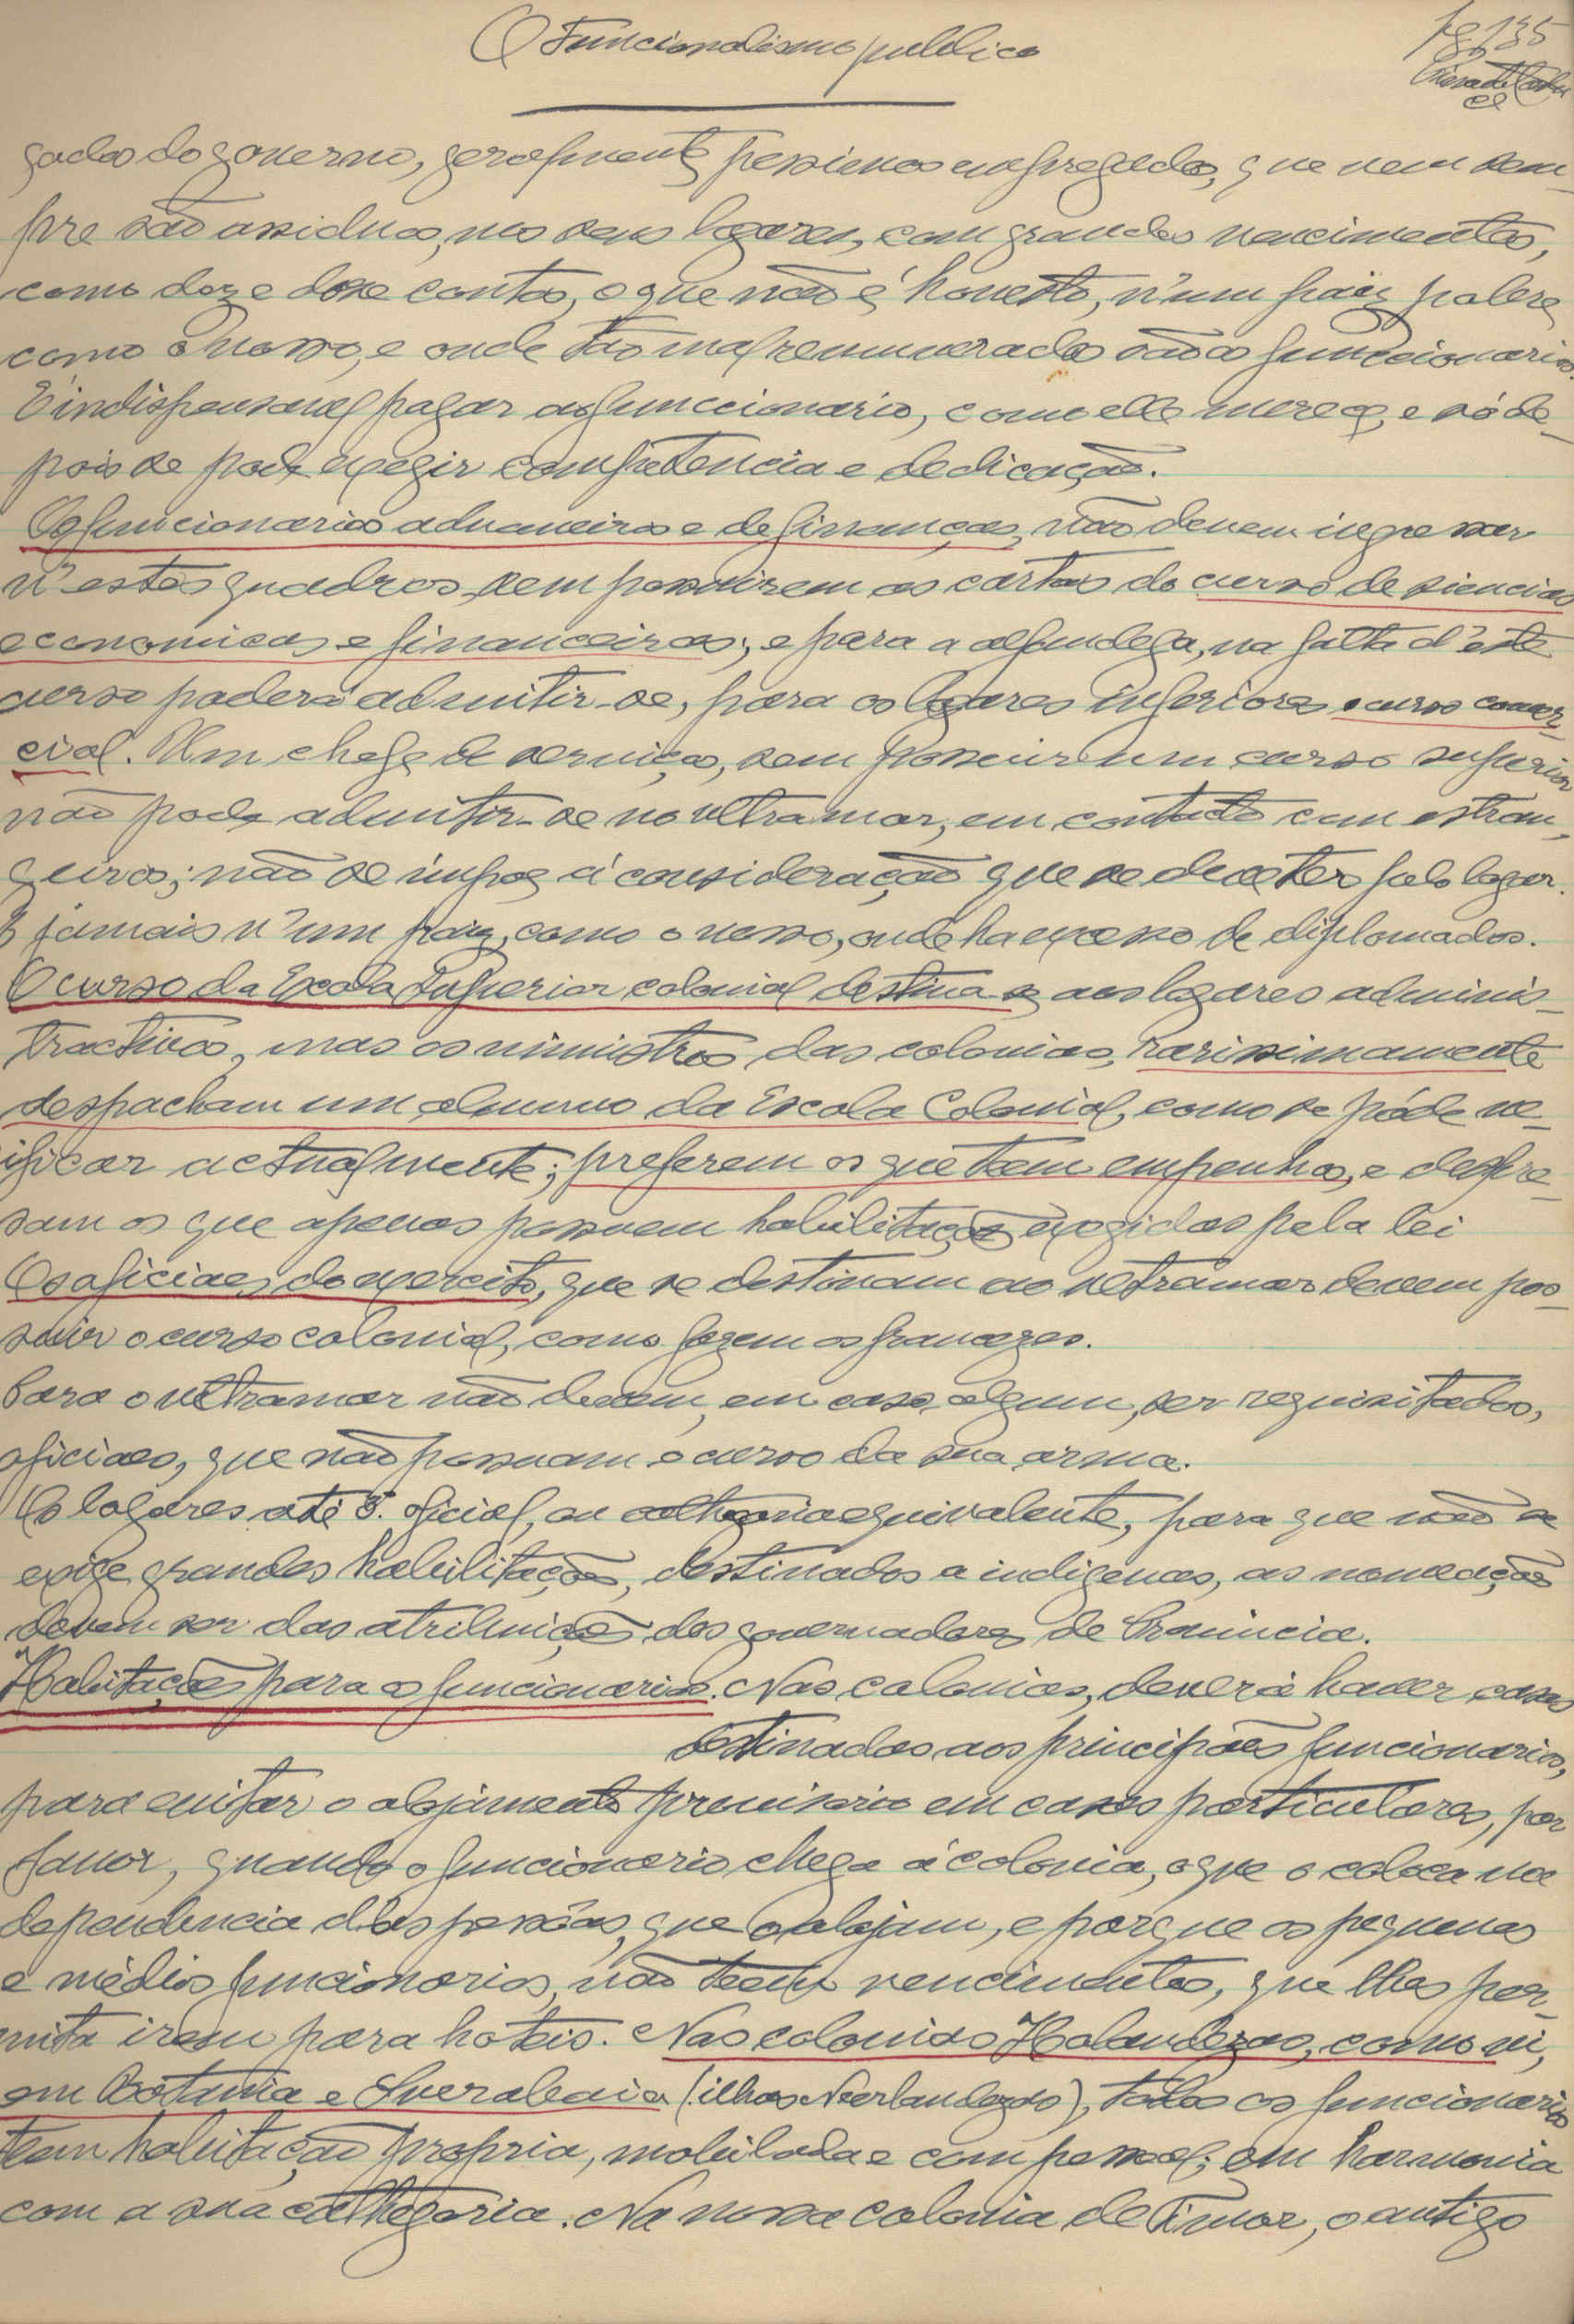 O Funcionalismo publico
Pg 135
gados do governo, geralmente pessimos empregados, que nem sem-
pre são assiduos, nos seus logares, com grandes vencimentos,
como doze contos, o que não é honesto, n'um paiz pobre
como o nosso, e onde tão mal remunerados são os funccionarios.
É indispensavel pagar ao funccionario, como elle merece, e só de-
pois se pode exegir competencia e dedicação.
Os funcionarios aduaneiros e de finanças, não devem ingressar
n'estes quadros, sem possuirem as cartas do curso de siencias
economicas e financeiras; e para a alfandega, na falta d'este
curso poderá admitir-se, para os logares inferiores o curso comer-
cial. Um chefe de serviços, sem possuir um curso superior
não pode admitir-se no ultramar, em contacto com estran-
geiros; não se impoe á consideração que se deve ter pelo logar.
E jamais n'um paiz, como o nosso, onde ha excesso de diplomados.
O curso da Escola Superior colonial destina-se aos logares adminis-
tractivos, mas os ministros das colonias, rarissimamente
despacham um alumno da Escola Colonial, como se póde ve-
ificar actualmente; preferem os que teem empenhos, e despre-
sam os que apenas possuem habilitações exegidas pela lei
Os oficiaes do exercito, que se destinam ao ultramar devem pos-
suir o curso colonial, como fazem os francezes.
Para o ultramar não devem, em caso algum, ser requisitados,
oficiaes, que não possuam o curso da sua arma.
Os logares até 3.º oficial, ou cathegoria equivalente, para que não se
exige grandes habilitações, destinados a indigenas, as nomeações
devem ser das atribuições dos governadores de Provincia.
Habitações para os funcionarios. Nas colonias, deverá haver casas
destinadas aos principaes funcionarios,
para evitar o alojamento provisorio em casas particulares, por
favor, quando o funcionario chega á colonia, o que o coloca na
dependencia das pessôas, que o alojam, e porque os pequenos
e médios funcionarios, não teem vencimentos, que lhes per-
mita irem para hoteis. Nas colonias Holandezas, como vi,
em Batavia e Suerabaia (ilhas Neerlandezas), todos os funcionarios
teem habitação propria, mobilada e com pessoal; em harmonia
com a sua cathegoria. Na nossa colonia de Timor, o antigo